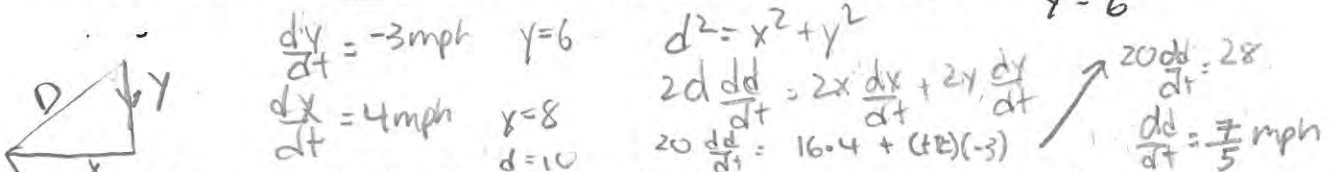 y = 6
D
y
x
dy/dt = -3mph y=6
dx/dt = 4mph x=8
d=10
d² = x² + y²
2d dd/dt = 2x dx/dt + 2y dy/dt
20 dd/dt = 16·4 + (12)(-3)
20 dd/dt = 28
dd/dt = 7/5 mph